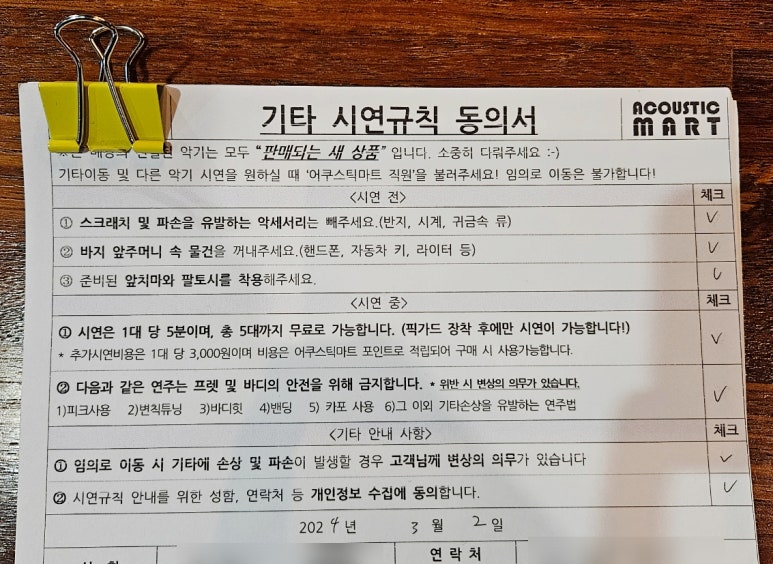 기타 시연규칙 동의서
ACOUSTIC
MART
악기는 모두 "판매되는 새 상품" 입니다. 소중히 다뤄주세요 :-)
기타이동 및 다른 악기 시연을 원하실 때 '어쿠스틱마트 직원'을 불러주세요! 임의로 이동은 불가합니다!
<시연 전> 체크
① 스크래치 및 파손을 유발하는 악세서리는 빼주세요.(반지, 시계, 귀금속 류) ✓
② 바지 앞주머니 속 물건을 꺼내주세요.(핸드폰, 자동차 키, 라이터 등) ✓
③ 준비된 앞치마와 팔토시를 착용해주세요. ✓
<시연 중> 체크
① 시연은 1대 당 5분이며, 총 5대까지 무료로 가능합니다. (픽가드 장착 후에만 시연이 가능합니다!) ✓
* 추가시연비용은 1대 당 3,000원이며 비용은 어쿠스틱마트 포인트로 적립되어 구매 시 사용가능합니다.
② 다음과 같은 연주는 프렛 및 바디의 안전을 위해 금지합니다. * 위반 시 변상의 의무가 있습니다. ✓
1)피크사용 2)변칙튜닝 3)바디힛 4)밴딩 5) 카포 사용 6)그 이외 기타손상을 유발하는 연주법
<기타 안내 사항> 체크
① 임의로 이동 시 기타에 손상 및 파손이 발생할 경우 고객님께 변상의 의무가 있습니다 ✓
② 시연규칙 안내를 위한 성함, 연락처 등 개인정보 수집에 동의합니다. ✓
2024년 3월 2일
연락처